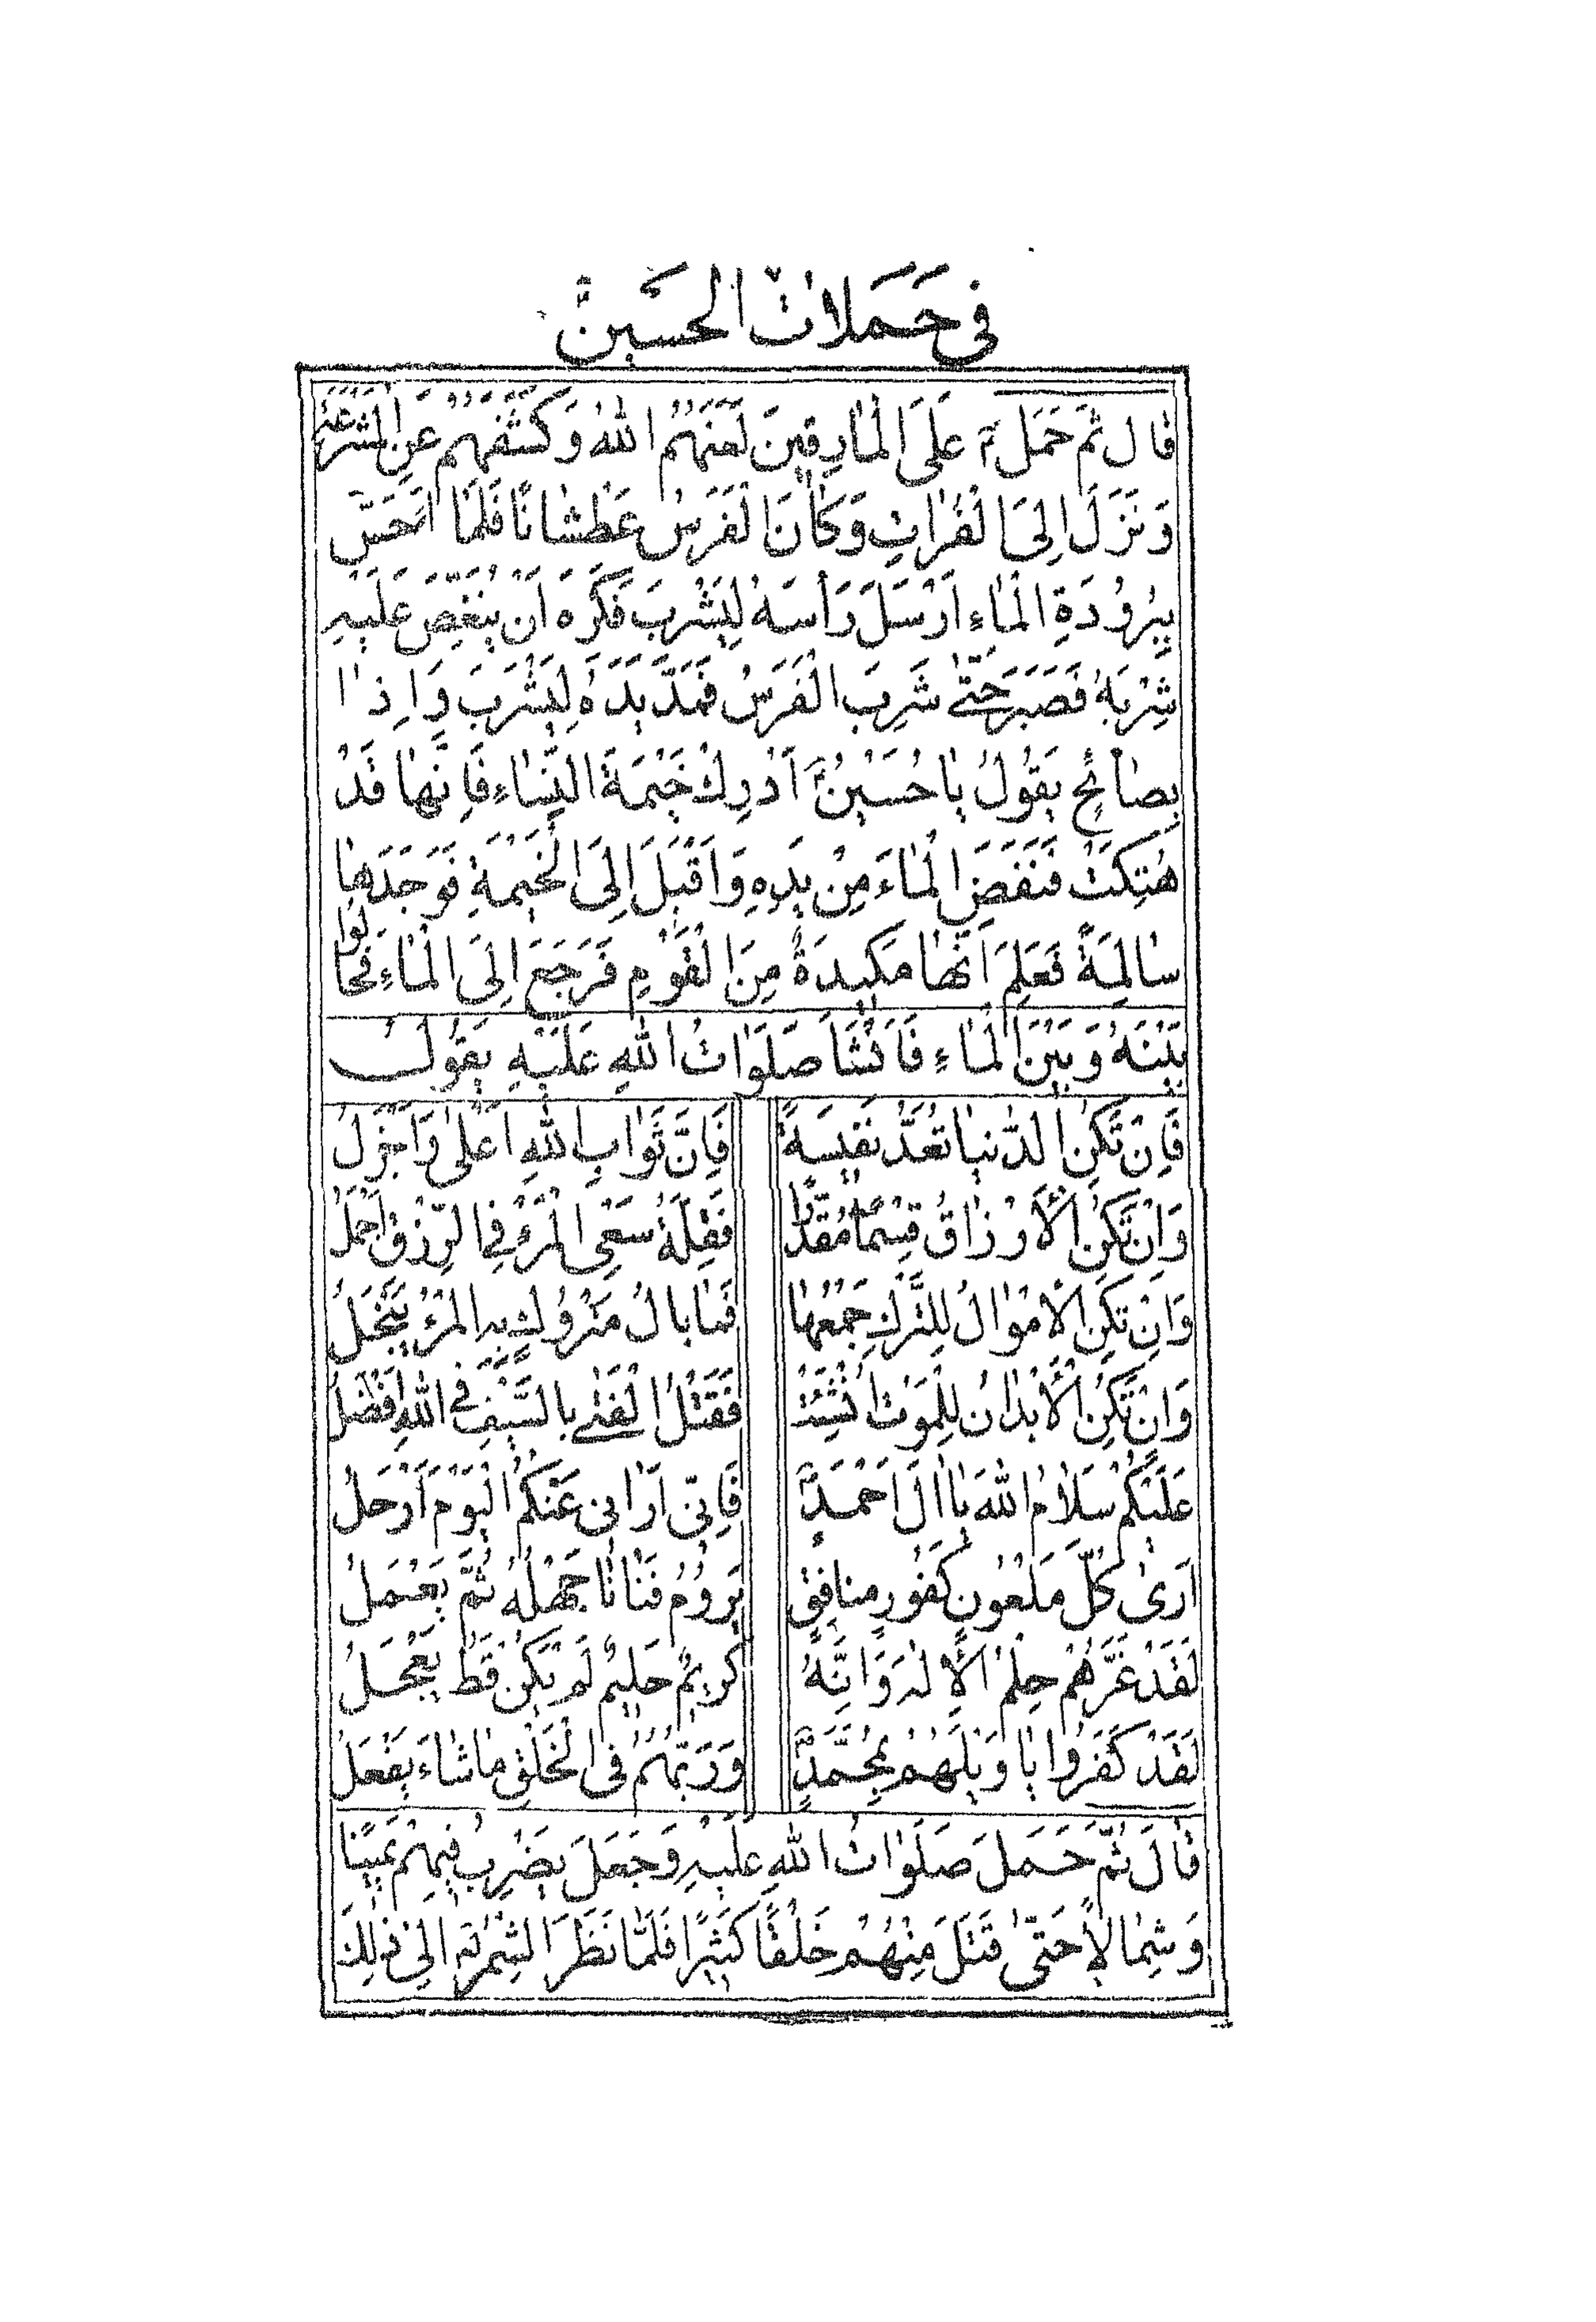 في حَمَلاتِ الحُسَيْن
قالَ ثُمَّ حَمَلَ عَلَى الْمارِقِينَ لَعَنَهُمُ اللهُ وَكَشَفَهُمْ عَنِ الْمَشْرَعَةِ
وَنَزَلَ اِلَى الْفُراتِ وَكانَ الْفَرَسُ عَطْشاناً فَلَمّا اَحَسَّ
بِبُرُودَةِ الْماءِ اَرْسَلَ رَأْسَهُ لِيَشْرَبَ فَكَرِهَ اَنْ يُنَغِّصَ عَلَيْهِ
شِرْبَهُ فَصَبَرَ حَتّى شَرِبَ الْفَرَسُ فَمَدَّ يَدَهُ لِيَشْرَبَ وَاِذا
بِصائِحٍ يَقُولُ يا حُسَيْنُ اَدْرِكْ خَيْمَةَ النِّساءِ فَاِنَّها قَدْ
هُتِكَتْ فَنَفَضَ الْماءَ مِنْ يَدِهِ وَاَقْبَلَ اِلَى الْخَيْمَةِ فَوَجَدَها
سالِمَةً فَعَلِمَ اَنَّها مَكِيدَةٌ مِنَ الْقَوْمِ فَرَجَعَ اِلَى الْماءِ فَحالُوا
بَيْنَهُ وَبَيْنَ الْماءِ فَاَنْشَأَ صَلَواتُ اللهِ عَلَيْهِ يَقُولُ
فَاِنْ تَكُنِ الدُّنْيا تُعَدُّ نَفِيسَةً فَاِنَّ ثَوابَ اللهِ اَعْلى وَاَجْزَلُ
وَاِنْ تَكُنِ الْاَرْزاقُ قِسْماً مُقَدَّراً فَقِلَّةُ سَعْيِ الْمَرْءِ فِي الرِّزْقِ اَجْمَلُ
وَاِنْ تَكُنِ الْاَمْوالُ لِلتَّرْكِ جَمْعُها فَما بالُ مَتْرُوكٍ بِهِ الْمَرْءُ يَبْخَلُ
وَاِنْ تَكُنِ الْاَبْدانُ لِلْمَوْتِ اُنْشِئَتْ فَقَتْلُ الْفَتى بِالسَّيْفِ فِي اللهِ اَفْضَلُ
عَلَيْكُمْ سَلامُ اللهِ يا الَ اَحْمَدَ فَاِنّي اَراني عَنْكُمُ الْيَوْمَ اَرْحَلُ
اَرى كُلَّ مَلْعُونٍ كَفُورٍ مُنافِقٍ يَرُومُ فَنانا جَهْلُهُ ثُمَّ يَعْمَلُ
لَقَدْ غَرَّهُمْ حِلْمُ الْاِلهِ وَاِنَّهُ كَرِيمٌ حَلِيمٌ لَمْ يَكُنْ قَطُّ يَعْجَلُ
لَقَدْ كَفَرُوا يا وَيْلَهُمْ بِمُحَمَّدٍ وَرَبُّهُمْ فِي الْخَلْقِ ما شاءَ يَفْعَلُ
قالَ ثُمَّ حَمَلَ صَلَواتُ اللهِ عَلَيْهِ وَجَعَلَ يَضْرِبُ فِيهِمْ يَمِيناً
وَشِمالاً حَتّى قَتَلَ مِنْهُمْ خَلْقاً كَثِيراً فَلَمّا نَظَرَ الشِّمْرُ اِلى ذلِكَ